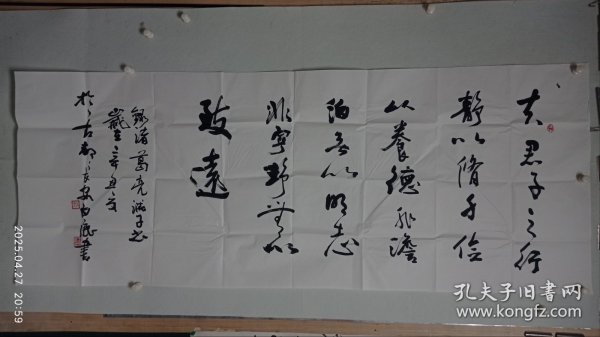 夫君子之行
静以脩身俭
以养德非澹
泊无以明志
非宁静无以
致远
录诸葛亮诫子书
岁在辛丑
於古都长安
书
2025.04.27 20:59
孔夫子旧书网
www.kongfz.com